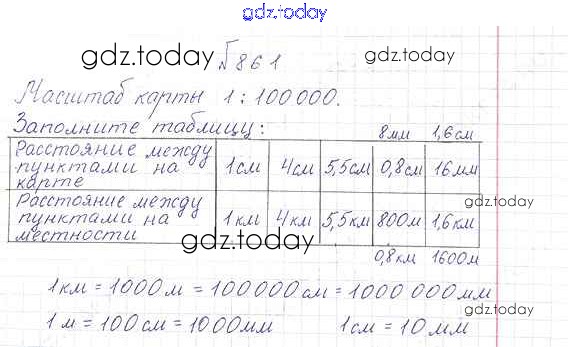 gdz.today
gdz.today
gdz.today
№861
Масштаб карты 1 : 100 000.
Заполните таблицу:
8мм 1,6см
Расстояние между пунктами на карте 1см 4см 5,5см 0,8см 16мм
Расстояние между пунктами на местности 1км 4км 5,5км 800м 1,6км
gdz.today
gdz.today
0,8км 1600м
1км = 1000м = 100000см = 1000 000мм
gdz.today
1м = 100см = 1000мм 1см = 10мм
gdz.today